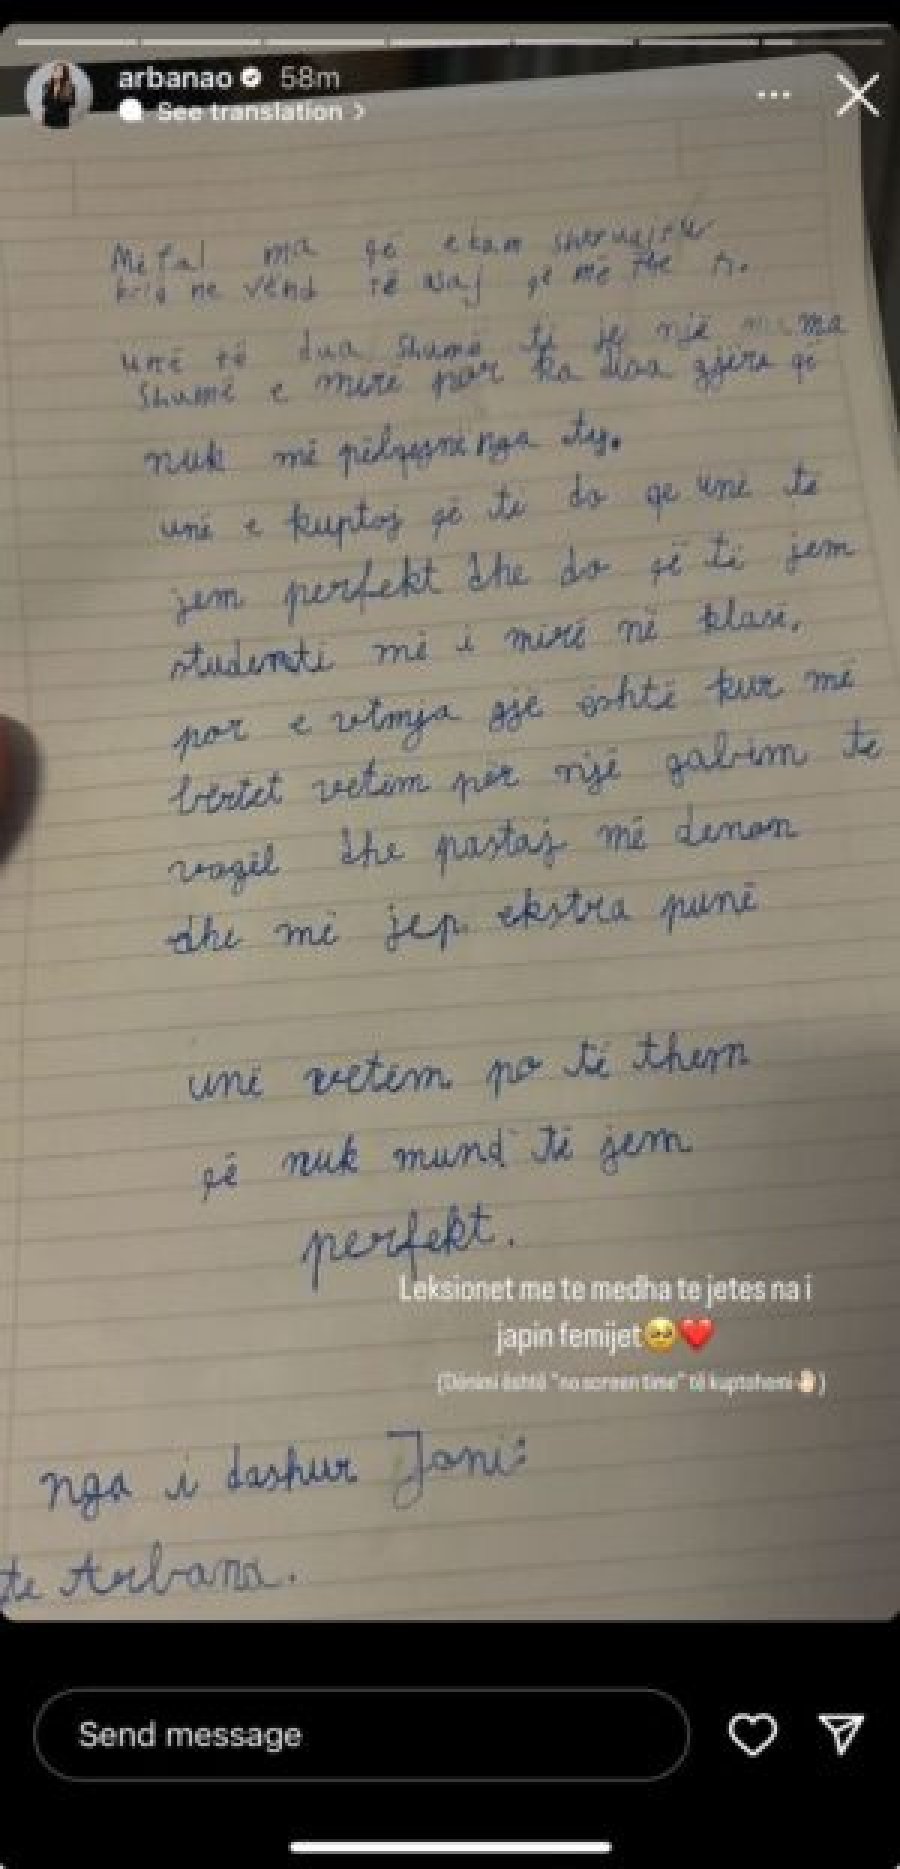 arbanao 58m
See translation
Më fal ma që e kam
ne vend të asaj që më the
unë të dua shumë ti je një mama
shumë e mirë por ka disa gjëra që
nuk më pëlqejnë nga ty.
unë e kuptoj që ti do qe unë të
jem perfekt dhe do që të jem
studenti më i mirë në klasë.
por e vetmja gjë është kur më
bërtet vetëm për një gabim te
vogël dhe pastaj më denon
dhe më jep ekstra punë
unë vetem po të them
që nuk mund të jem
perfekt.
Leksionet me te medha te jetes na i
japin femijet🥹❤️
(Dënimi është "no screen time" të kuptohemi)
nga i dashur Joni
te Arbana.
Send message